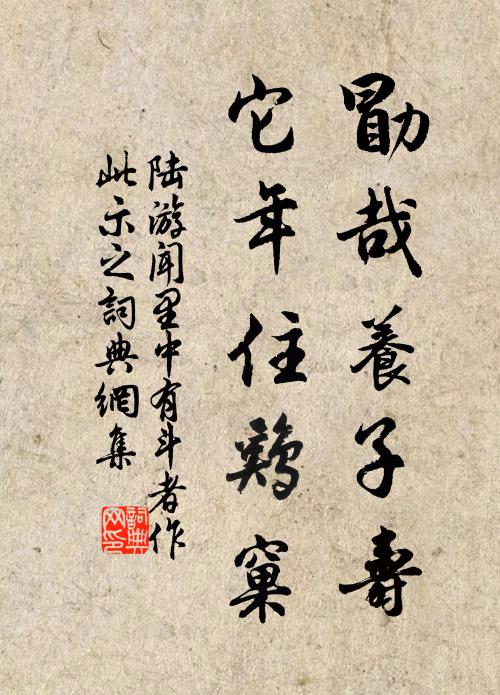 勖哉養子壽
它年住鷄窠
陸游聞里中有斗者作
此示之詞典網集
詞典网印